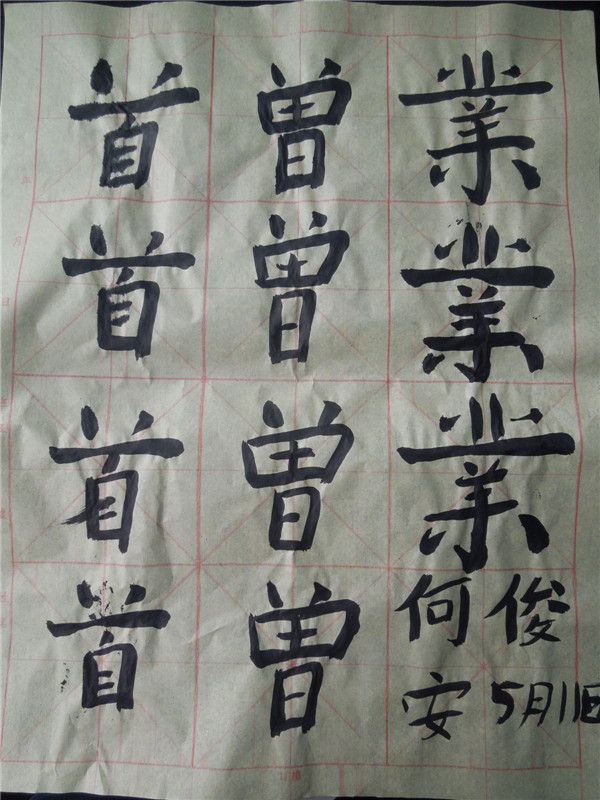 首曾業
首曾業
首曾業
首曾何俊
安5月11日